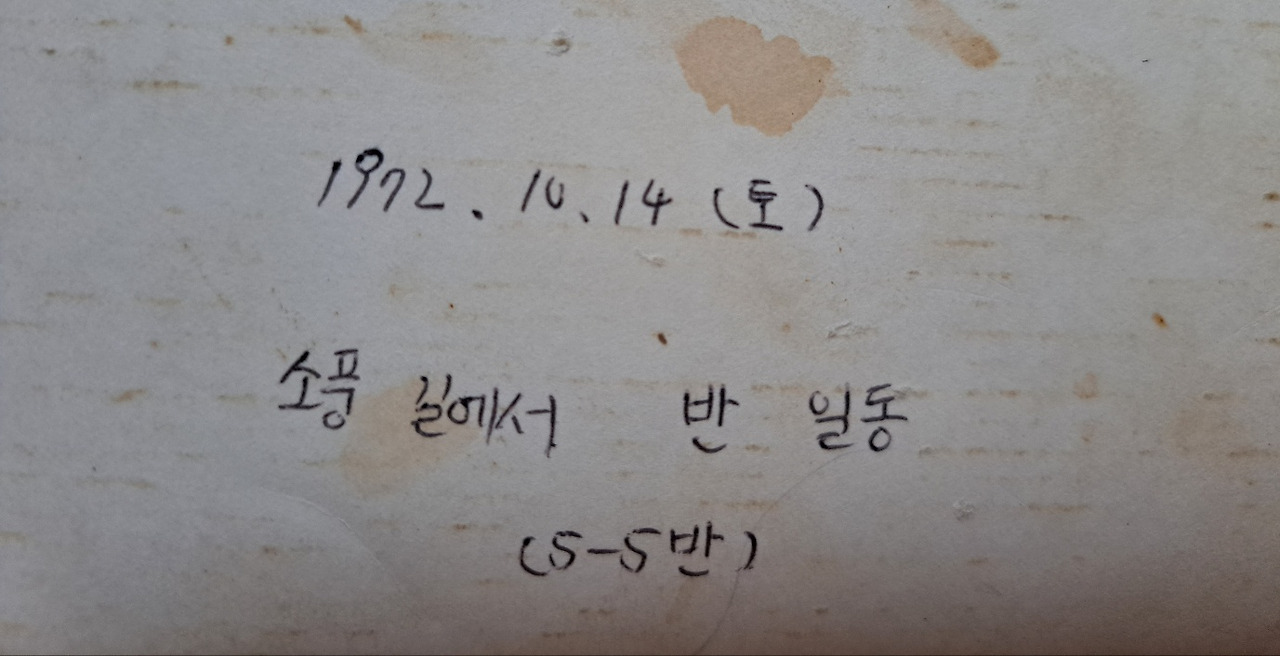 1972. 10. 14 (토)
소풍 길에서 반 일동
(5-5반)